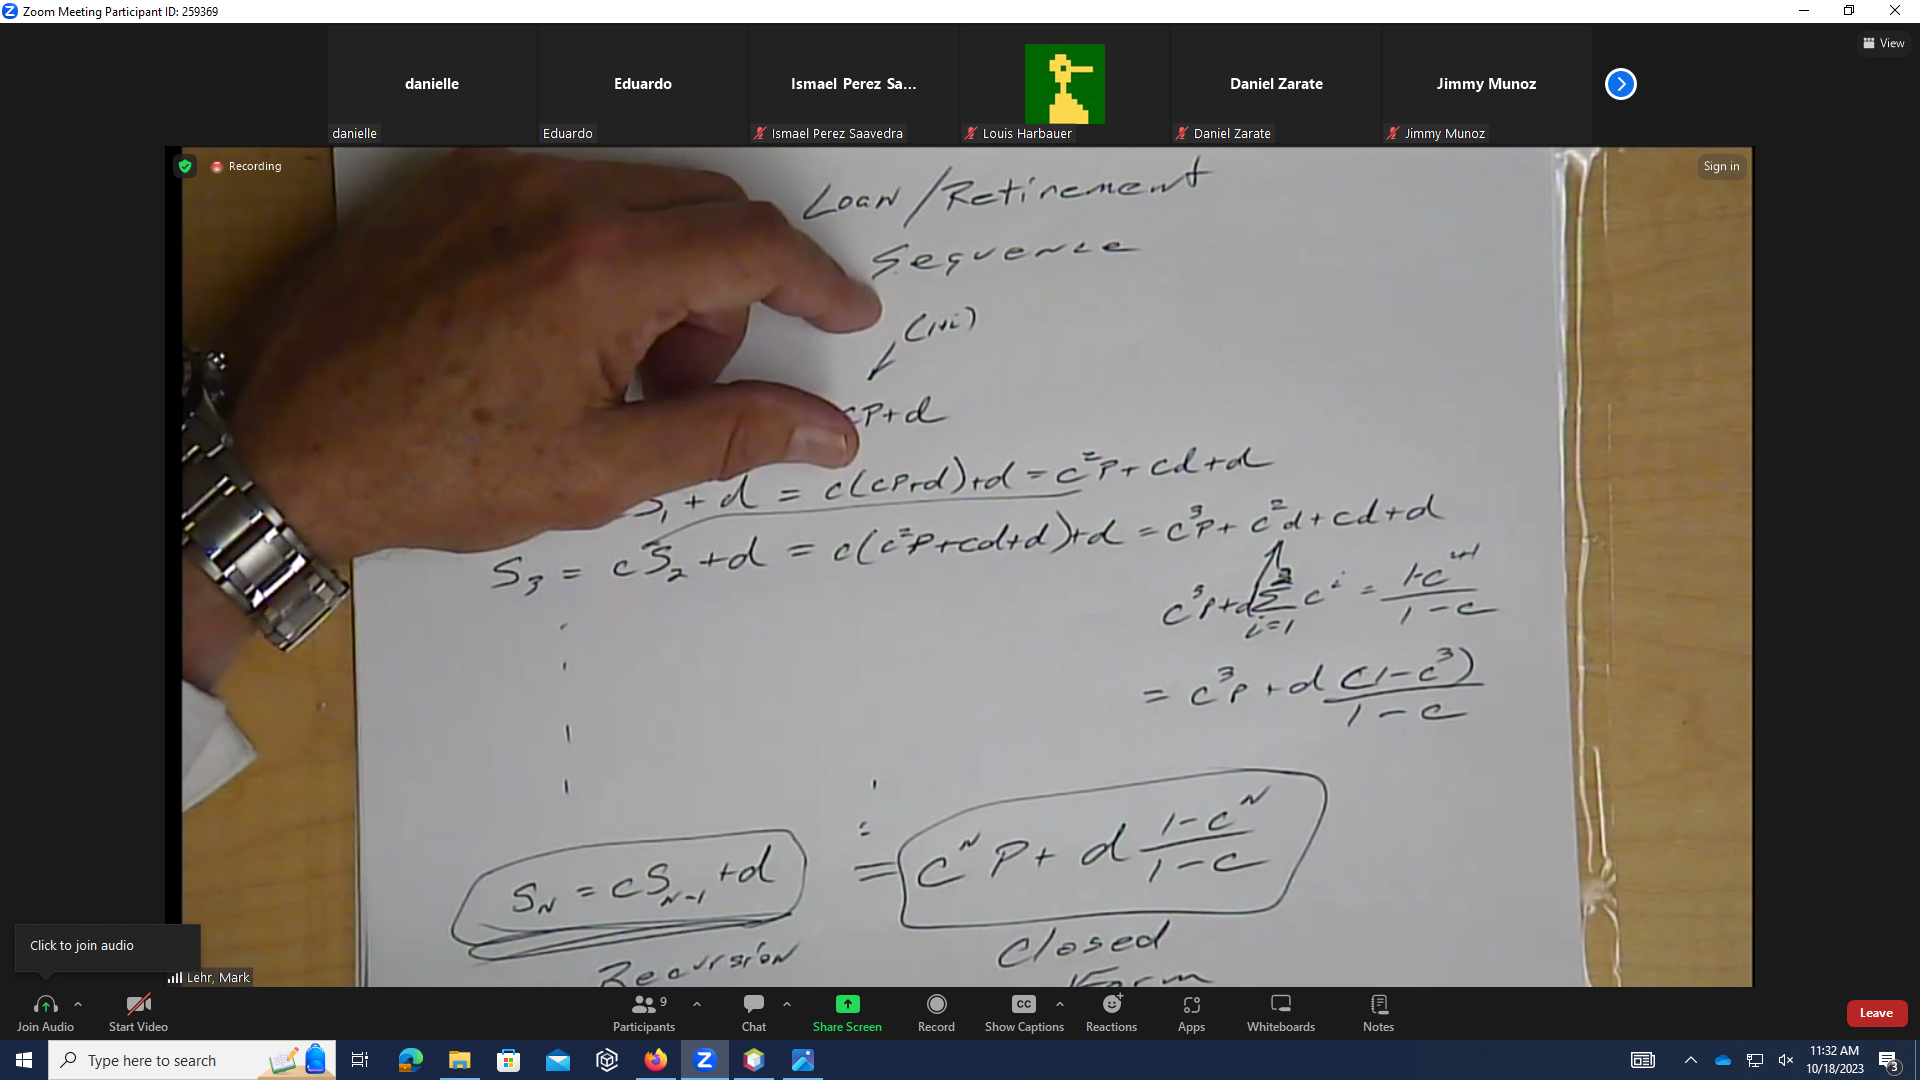 Zoom Meeting Participant ID: 259369
View
danielle
Eduardo
Ismael Perez Sa...
Daniel Zarate
Jimmy Munoz
danielle
Eduardo
Ismael Perez Saavedra
Louis Harbauer
Daniel Zarate
Jimmy Munoz
Recording
Sign in
Loan/Retirement
Sequence
(1+i)
cP+d
S₁ + d = c(cP+d)+d = c²P+cd+d
S₃ = cS₂+d = c(c²P+cd+d)+d = c³P+c²d+cd+d
= c³P+d(1-c³)/1-c
S_N = cS_N-1 +d = c^N P+ d 1-c^N/1-c
Recursion
Closed
Form
Click to join audio
Lehr, Mark
Join Audio
Start Video
Participants
9
Chat
Share Screen
Record
CC
Show Captions
Reactions
Apps
Whiteboards
Notes
Leave
Type here to search
11:32 AM
10/18/2023
3